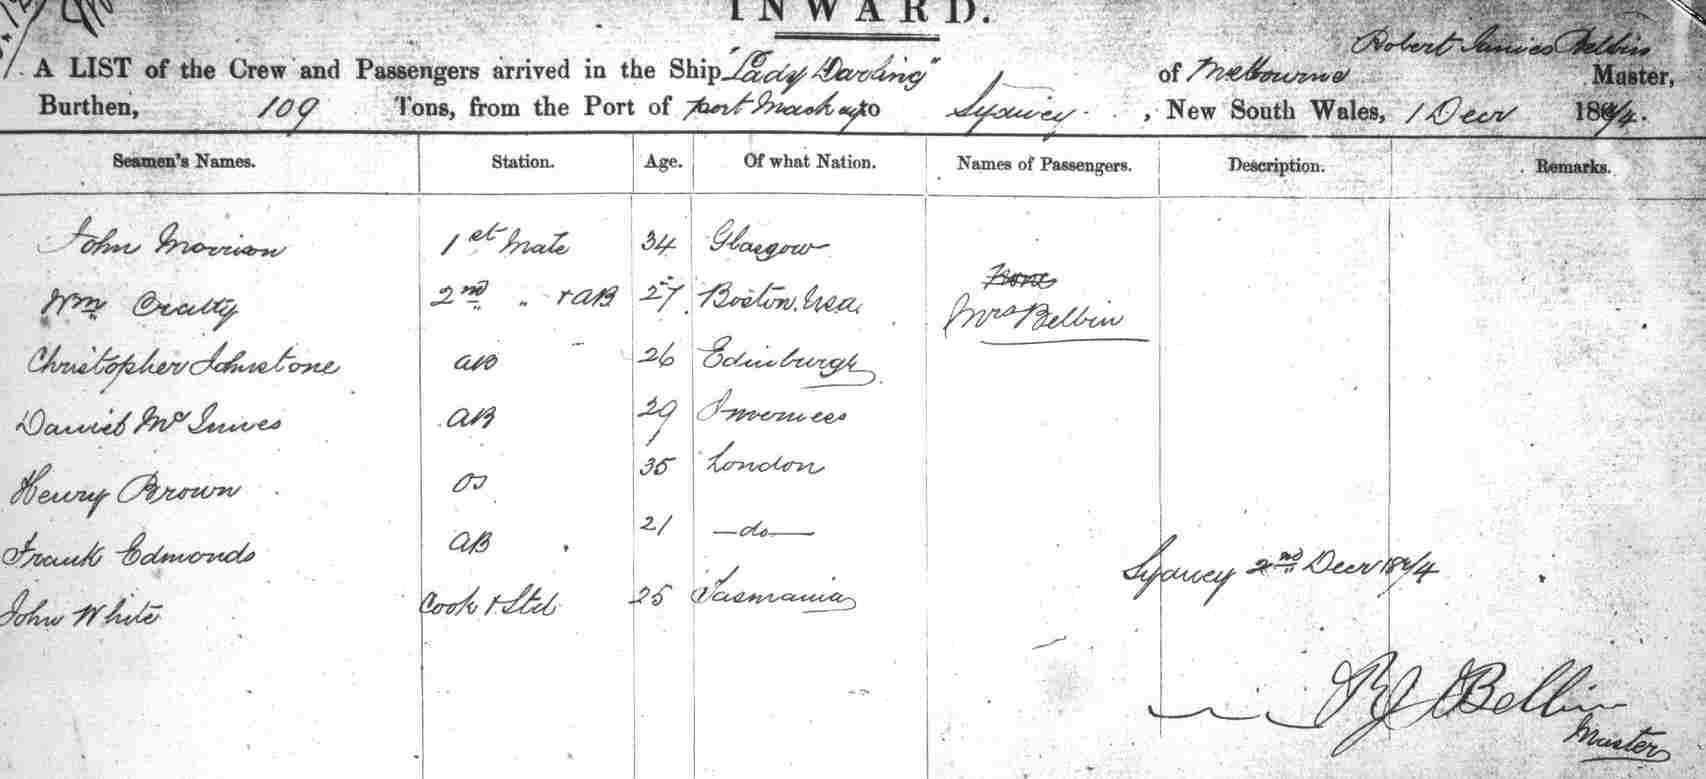 INWARD.
Robert James Belbin
A LIST of the Crew and Passengers arrived in the Ship "Lady Darling" of Melbourne Master,
Burthen, 109 Tons, from the Port of Port Mackay to Sydney , New South Wales, 1 Decr 1874.
Seamen's Names. Station. Age. Of what Nation. Names of Passengers. Description. Remarks.
John Morrison 1st Mate 34 Glasgow
None
Wm Cralty 2nd " + AB 27 Boston. Usa. Mrs Belbin
Christopher Johnstone AB 26 Edinburgh
Daniel Mc Innes AB 29 Inverness
Henry Brown OS 35 London
Frank Edmonds AB 21 —do—
Sydney 2nd Decr 1874
John White Cook + Std 25 Tasmania
RJ Belbin
Master